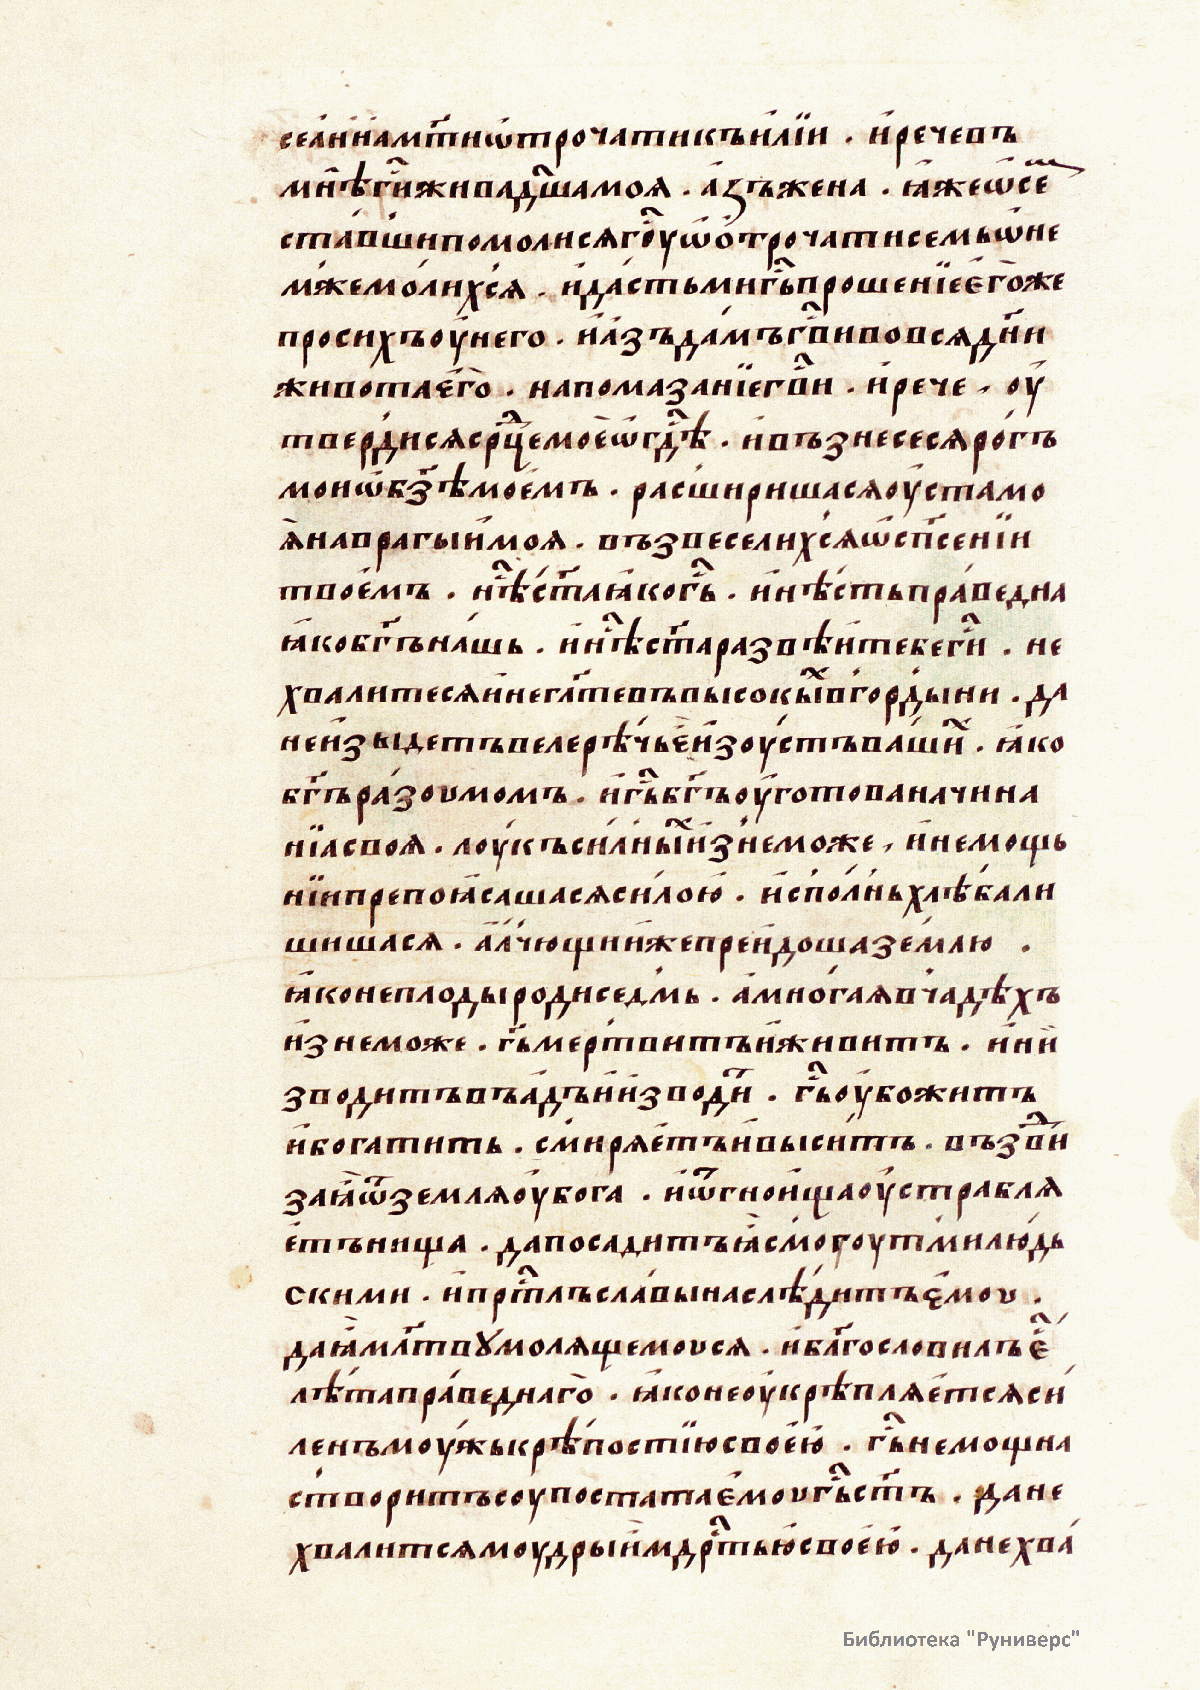 сеа́ннамт҃иѿтрочатикъилїи . и҆речевъ
мнѣ̀гⷭ҇иживадш҃амоя . а҆зъжена . ꙗ҆жеѡ҆сⷮе
ста́вшипомолисягⷭ҇оуѡ҆ѻ҆трочатисемъѡ҆не
мжемоли́хся . и҆да́стьмигⷭ҇ьпрошенїееѓоже
просихъоу҆него . и҆а҆зъда́мъгⷭ҇вивовсядн҃и
животаего̀ . напомазанїегⷭ҇ви . и҆рече , оу҆
тверди́сясрⷣцемоеѡ҆гⷭ҇дѣ . и҆възнесесяро́гъ
моиѡ҆бз҃ѣмое́мъ . расширишасяоу҆стамо
я҆навраги҆моя . възвеселихсяѡ҆сп҃сенїи
твое́мъ . нѣⷭ҇ст҃аꙗ҆когⷭ҇ь . и҆нѣ́стьпра́ведна
ꙗ҆кобг҃ъна́шь . и҆нѣⷭ҇ст҃аразвѣи҆тебегⷭ҇и . не
хвалитесяи҆негл҃тевъвысокыⷯвгордыни . да
неи҆зыдетъвелерѣ́чьеи҆зоу҆стъва́шиⷯ . ꙗ҆ко
бг҃ъра́зоумомъ . и҆гⷭ҇ьбг҃ъоу҆готованачина
нїасвоя . лоукъси́лныⷯи҆знеможе , и҆немощь
нїипрепоꙗ҆сашасяси́лою . и҆спо́лньхлѣ́бали
шишася . а҆лчющии҆жепреи҆дошазе́млю .
ꙗ҆конеплодыродиседмь . а҆мно́гаявчадѣхъ
и҆знеможе . гⷭ҇ьмертвитъи҆живитъ . и҆ни҆
зводитъвъа҆дъи҆и҆зводиⷮ . гⷭ҇ьоу҆божитъ
и҆богатить . смиряе́тъи҆выситъ . възвⷣи
заꙗ҆ѿземляоу҆бога . и҆ѿгнои҆щаоу҆странля
е́тънища . дапосадитъꙗ҆смогоутмилюдь
скими . и҆прⷭ҇тлъсла́вынаслѣ́дитъе҆моу .
даꙗ҆мл҃твꙋмолящемоуся . и҆бл҃гословилъеⷭ҇
лѣ́тапра́веднаго . ꙗ҆конеоу҆крѣпляе́тсяси
ленъмоужькрѣ́постїюсвоею . гⷭ҇ьнемощна
створитъсоупостатае҆моугⷭ҇ьст҃ъ . дане
хвалитсямоудрыи҆мдⷭ҇ртьюсвоею . данехва́
Библиотека "Руниверс"